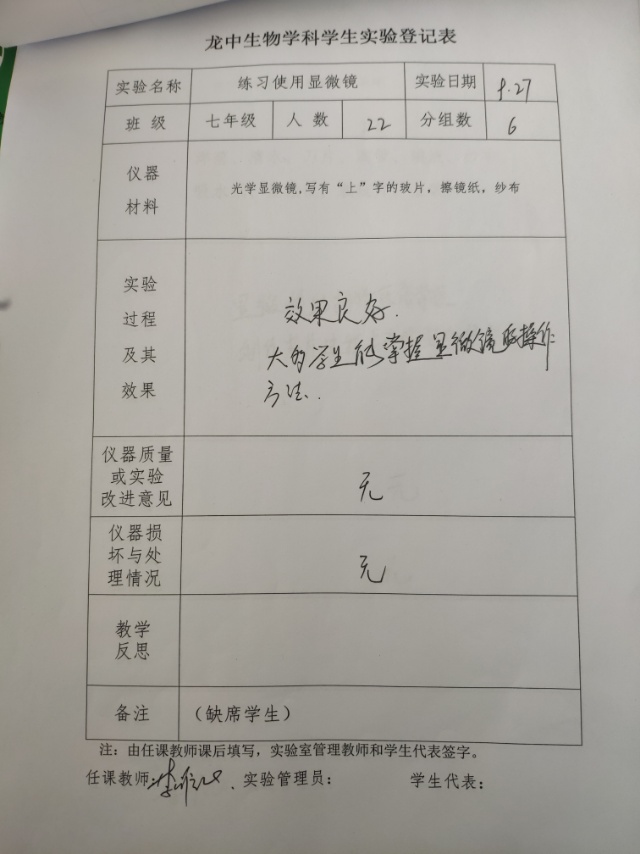 龙中生物学科学生实验登记表
实验名称 练习使用显微镜 实验日期 9.27
班 级 七年级 人 数 22 分组数 6
仪器
材料
光学显微镜,写有“上”字的玻片，擦镜纸，纱布
实验
过程
及其
效果
效果良好.
大多学生能掌握显微镜的操作
方法.
仪器质量
或实验
改进意见
无
仪器损
坏与处
理情况
无
教学
反思
备注 （缺席学生）
注：由任课教师课后填写，实验室管理教师和学生代表签字。
任课教师: 实验管理员： 学生代表：